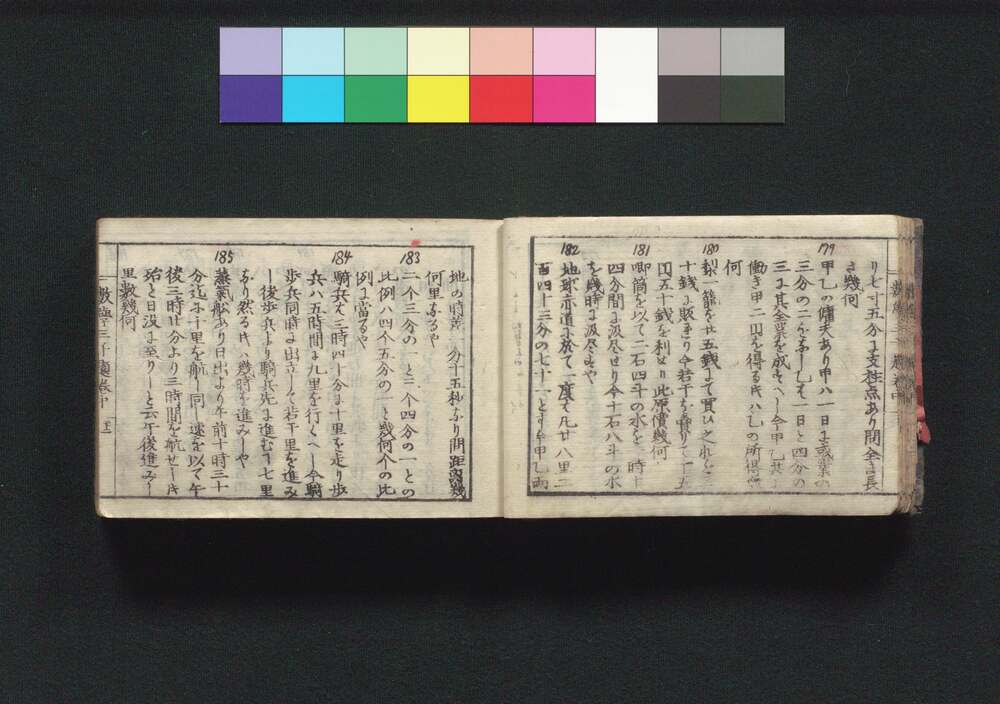 り七寸五分に支柱点あり問全き長
さ幾何
179
甲乙の傭夫あり甲ハ一日に或業の
三分の二を為し乙ハ一日と四分の
三に其全業を成すべし今甲乙共に
働き甲二円を得る時ハ乙の所得
何
180
梨一籠を廿五銭にて買ひ之れを
十銭に販
円五十銭を利せり此原價幾何
181
喞筒を以て二石四斗の水を 時
四分間に汲尽せり今十石八斗の水
を幾時に汲尽すや
182
地球赤道に於て一度ハ凡廿八里二
百四十三分の七十一とす今甲乙両
地の時差 分十五秒なり問距離幾
何里なるや
183
二个三分の一と三个四分の一との
比例ハ四个五分の一と幾何个の比
例に當るや
184
騎兵ハ三時四十分に十里を走り歩
兵ハ五時間に九里を行くべし今騎
歩兵同時に出立して若干里を進み
し後歩兵より騎兵先に進むこと七里
なり然る時ハ幾時を進みしや
185
蒸氣舩あり日出より午前十時三十
分迄に千里を航し同一速を以て午
後三時廿分より三時間を航せし時
殆と日没に至りしと云午後進みし
里数幾何